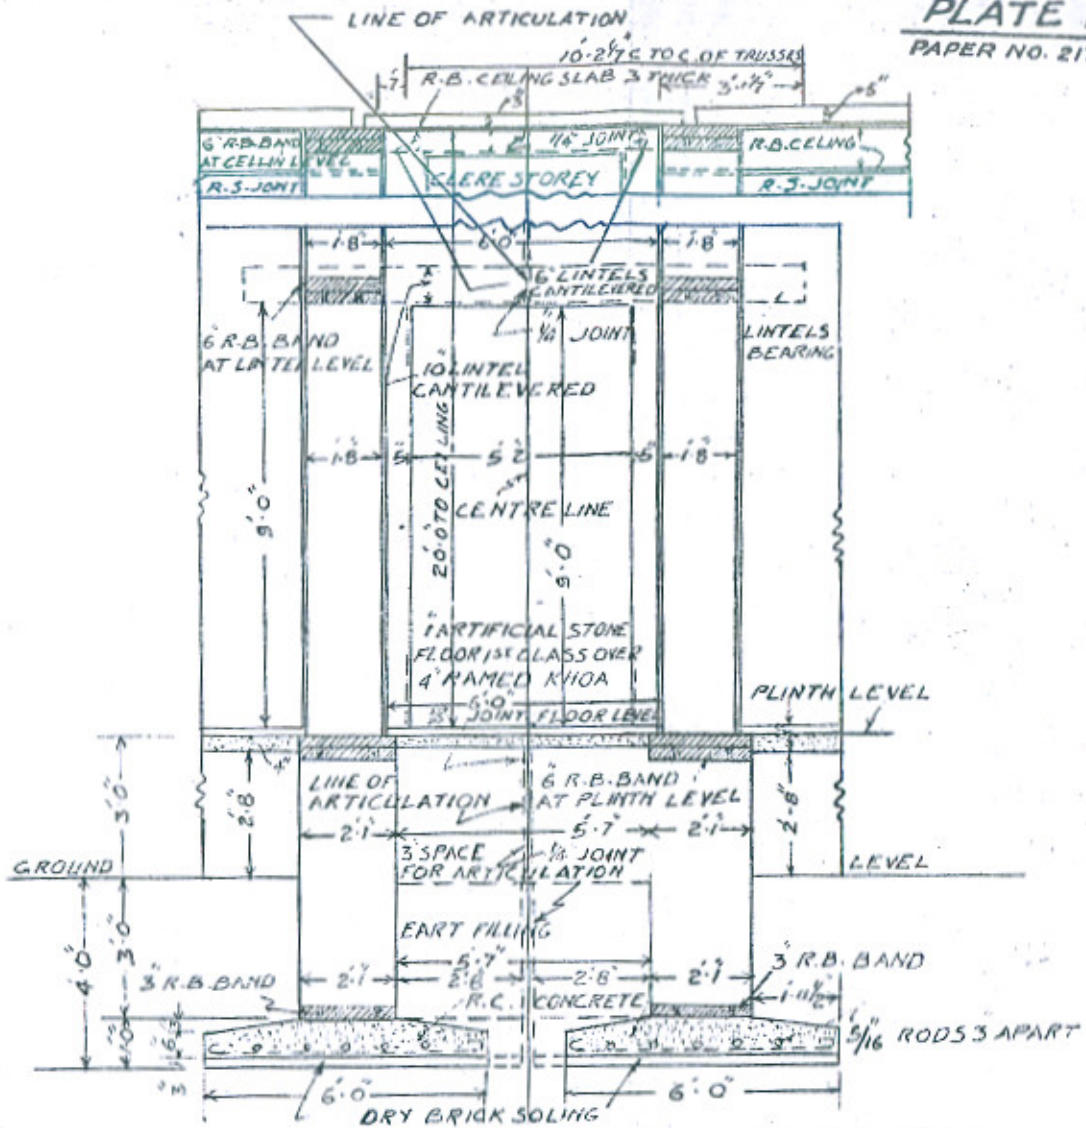 PLATE
PAPER NO. 21
LINE OF ARTICULATION
10'-2 4/7" C TO C. OF TRUSSES
7"
R.B. CEILING SLAB 3" THICK
3'-1 1/7"
3"
5"
6" R.B. BAND
AT CELLIN LEVEL
R.S. JOINT
1/4" JOINT
CLERE STOREY
R.B. CELING
R.S. JOINT
1'8"
6'0"
1'8"
6" LINTELS
CANTILEVERED
1/4" JOINT
6" R.B. BAND
AT LINTEL LEVEL
LINTELS
BEARING
10" LINTEL
CANTILEVERED
1'8"
5"
5'2"
5"
1'8"
9'0"
20'0" TO CEILING
CENTRE LINE
9'0"
1" ARTIFICIAL STONE
FLOOR 1ST CLASS OVER
4" RAMED KHOA
6'0"
1/8" JOINT FLOOR LEVEL
PLINTH LEVEL
4"
3'0"
2'8"
LINE OF
ARTICULATION
6" R.B. BAND
AT PLINTH LEVEL
2'8"
2'1"
5'-7"
2'1"
3" SPACE
FOR ARTICULATION
1/8" JOINT
GROUND
LEVEL
EART FILLING
4'0"
3'0"
5'-7"
2'1"
2'8"
2'8"
2'1"
3" R.B. BAND
3" R.B. BAND
1'-11 1/2"
R.C. CONCRETE
1'0"
6"
3"
3"
5/16" RODS 3" APART
6'0"
6'0"
DRY BRICK SOLING